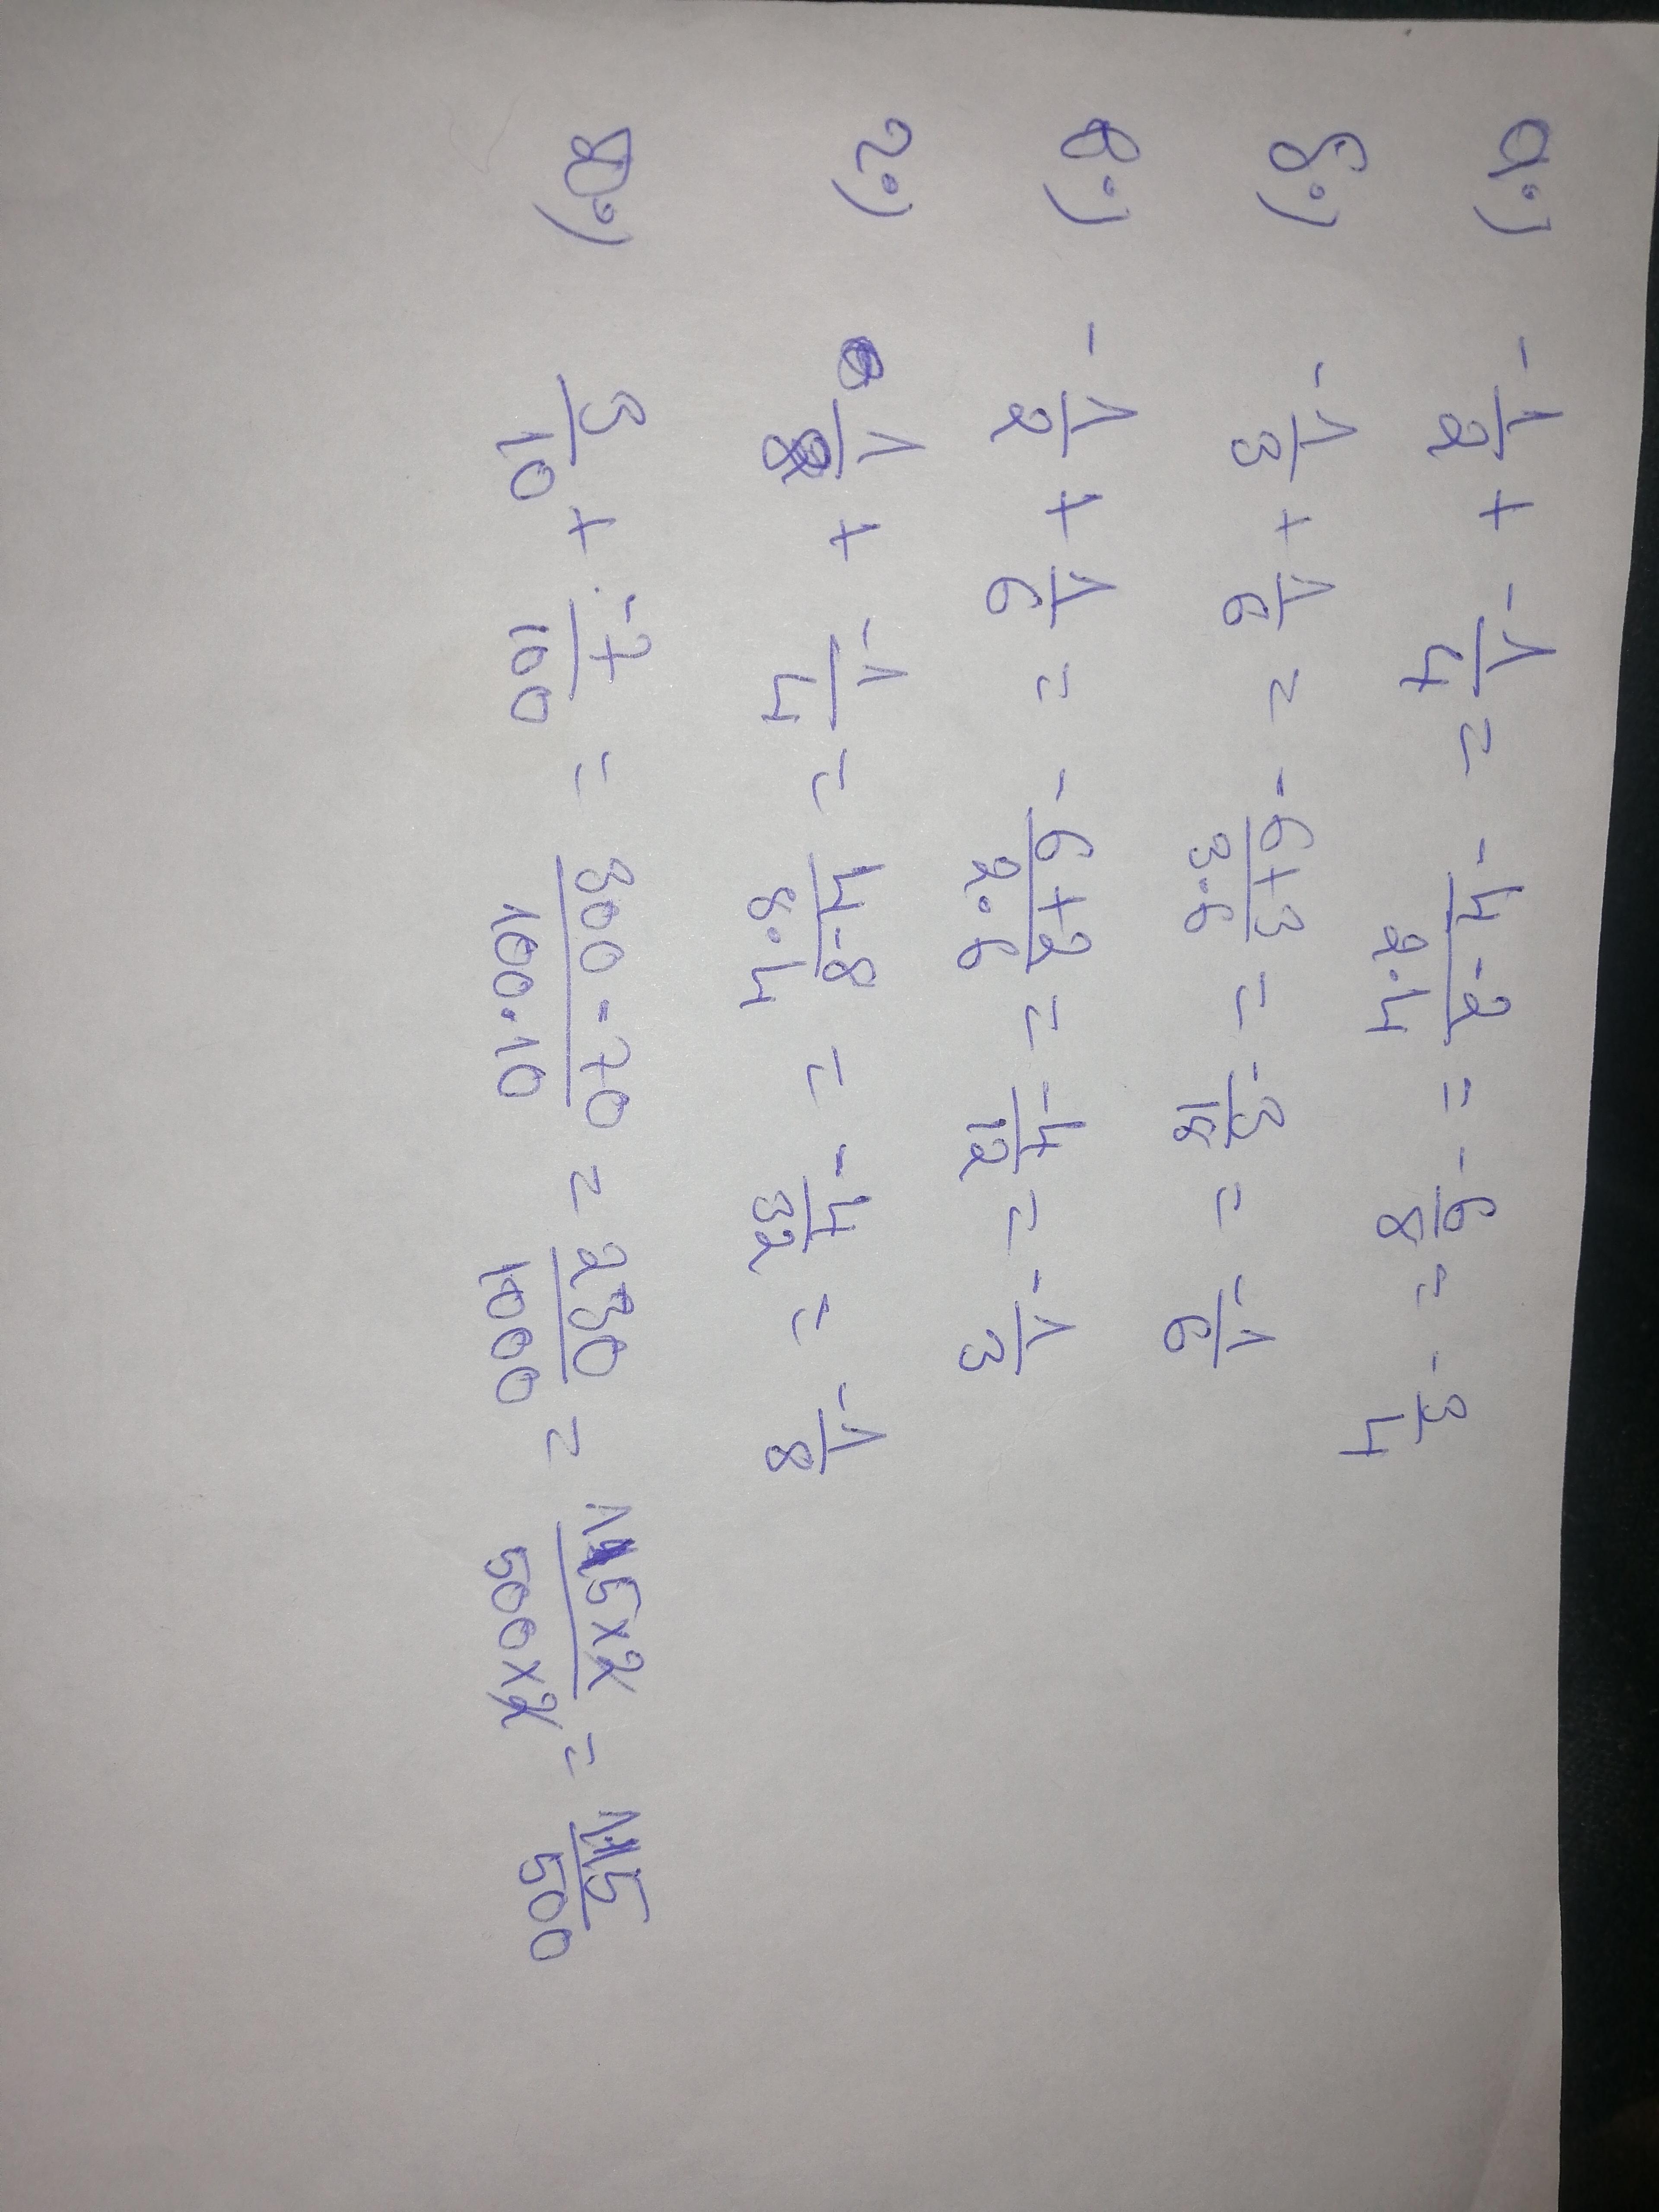 а.) -1/2 + -1/4 = -4-2/2·4 = -6/8 = -3/4
б.) -1/3 + 1/6 = -6+3/3·6 = -3/18 = -1/6
в.) -1/2 + 1/6 = -6+2/2·6 = -4/12 = -1/3
г.) 1/8 + -1/4 = 4-8/8·4 = -4/32 = -1/8
д.) 3/10 + -7/100 = 300-70/100·10 = 230/1000 = 115×2/500×2 = 115/500